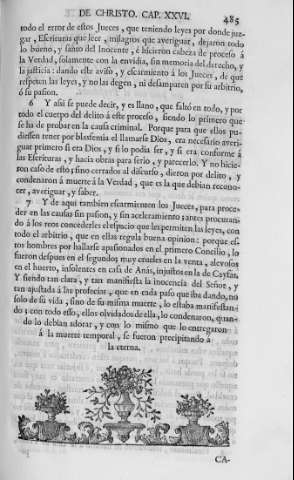 DE CHRISTO. CAP. XXVI.
485
todo el error de estos Jueces, que teniendo leyes por donde juz-
gar, Escrituras que leer, milagros que averiguar, dejaron todo
lo bueno, y santo del Inocente, è hicieron cabeza de proceso à
la Verdad, solamente con la envidia, sin memoria del derecho, y
la justicia: dando este aviso, y escarmiento à los Jueces, de que
respeten las leyes, y no las degen, ni desamparen por su arbitrio,
ò su pasion.
6 Y asi se puede decir, y es llano, que faltò en todo, y por
todo el cuerpo del delito à este proceso, siendo lo primero que
se ha de probar en la causa criminal. Porque para que ellos pu-
diessen tener por blasfemia el llamarse Dios, era necesario averi-
guar primero si era Dios, y si lo podia ser, y si era conforme à
las Escrituras, y hacia obras para serlo, y parecerlo. Y no hicie-
ron caso de esto; sino cerrados al discurso, dieron por delito, y
condenaron à muerte à la Verdad, que es la que debian recono-
cer, averiguar, y saber.
7 Y de aqui tambien escarmienten los Jueces, para proce-
der en las causas sin pasion, y sin aceleramiento; antes procuran-
do à los reos concederles el espacio que les permiten las leyes, con
todo el arbitrio, que en ellas regula buena opinion: porque es-
tos hombres por hallarse apasionados en el primero Concilio, lo
fueron despues en el segundo; muy crueles en la venta, alevosos
en el huerto, insolentes en casa de Anàs, injustos en la de Cayfàs.
Y siendo tan clara, y tan manifiesta la inocencia del Señor, y
tan ajustada à las profecias, que en cada paso que iba dando, no
solo de su vida, sino de su misma muerte, lo estaba manifestan-
do; con todo eso, ellos olvidados de ella, lo condenaron, quan-
do lo debian adorar, y con lo mismo que lo entregaron
à la muerte temporal, se fueron precipitando à
la eterna.
CA-